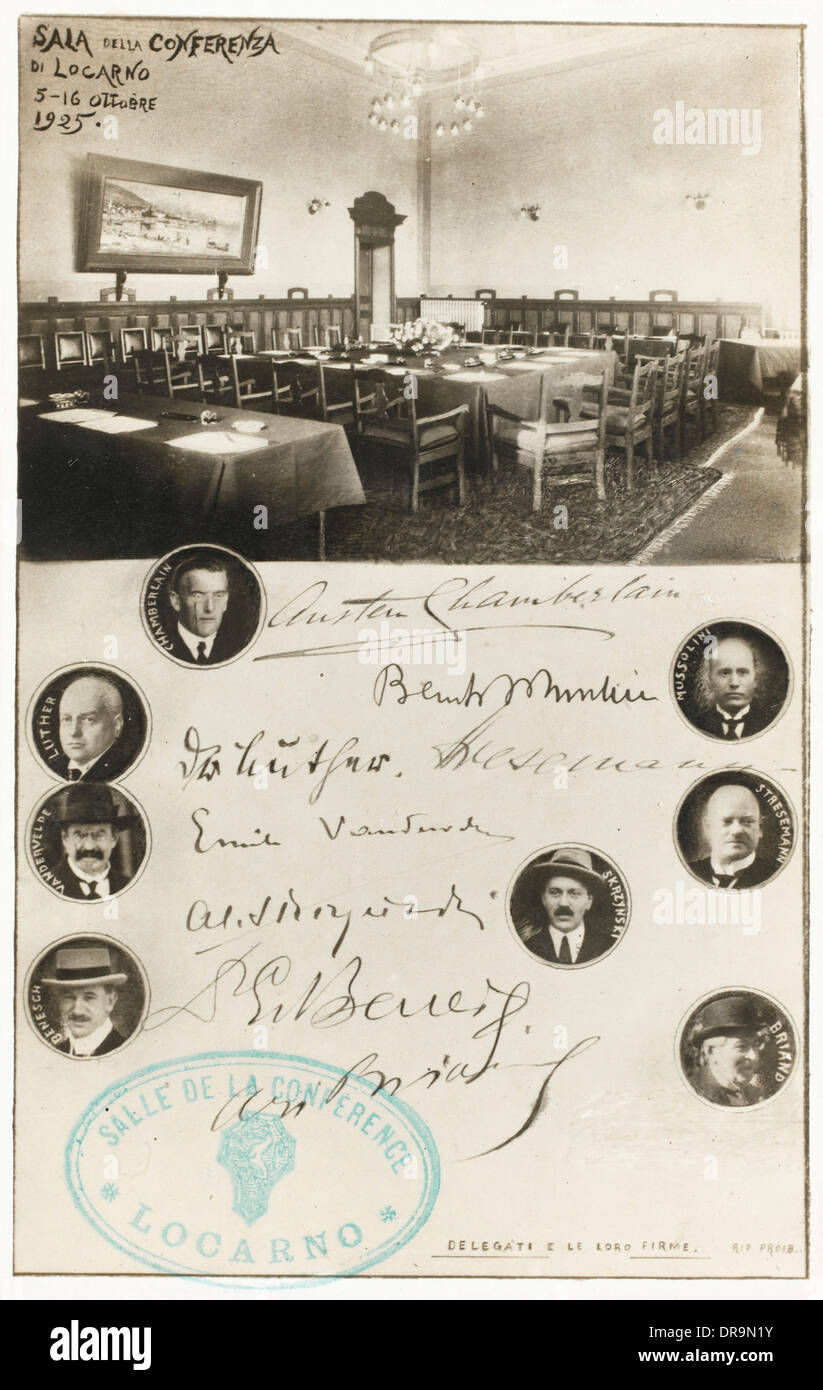 SALA DELLA CONFERENZA
DI LOCARNO
5-16 OTTOBRE
1925.
CHAMBERLAIN
Austen Chamberlain
MUSSOLINI
Benito Mussolini
LUTHER
Dr Luther. Stresemann
STRESEMANN
VANDERVELDE
Emile Vandervelde
SKRZYNSKI
Al. Skrzynski
BENESCH
Dr E. Beneš
BRIAND
Ari Briand
SALLE DE LA CONFÉRENCE
LOCARNO
DELEGATI E LE LORO FIRME. RIP. PROIB.
alamy
alamy
Image ID: DR9N1Y
www.alamy.com